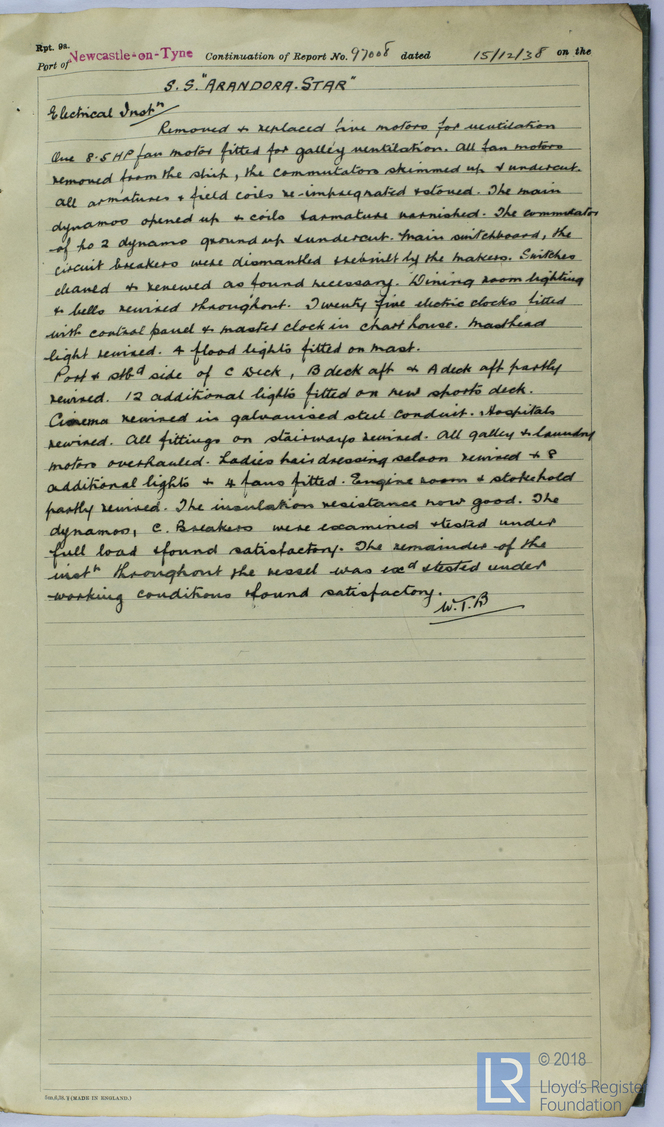 Rpt. 9a.
Port of Newcastle-on-Tyne Continuation of Report No. 97008 dated 15/12/38 on the
S.S. "ARANDORA STAR"
Electrical Instn
Removed & replaced five motors for ventilation
One 8.5 HP fan motor fitted for galley ventilation. All fan motors
removed from the ship, the commutators skimmed up & undercut.
All armatures & field coils re-impregnated & stoved. The main
dynamos opened up & coils & armature varnished. The commutator
of No 2 dynamo ground up & undercut. Main switchboard, the
circuit breakers were dismantled & rebuilt by the makers. Switches
cleaned & renewed as found necessary. Dining room lighting
& bells rewired throughout. Twenty five electric clocks fitted
with control panel & master clock in chart house. Masthead
light rewired. 4 flood lights fitted on mast.
Port & stbd side of C Deck, B deck aft & A deck aft partly
rewired. 12 additional lights fitted on new sports deck.
Cinema rewired in galvanised steel conduit. Hospitals
rewired. All fittings on stairways rewired. All galley & laundry
motors overhauled. Ladies hairdressing saloon rewired & 8
additional lights & 4 fans fitted. Engine room & stokehold
partly rewired. The insulation resistance now good. The
dynamos, C. Breakers were examined & tested under
full load & found satisfactory. The remainder of the
instn throughout the vessel was exd & tested under
working conditions & found satisfactory.
W.T.B
(MADE IN ENGLAND.)
LR
© 2018
Lloyd's Register
Foundation